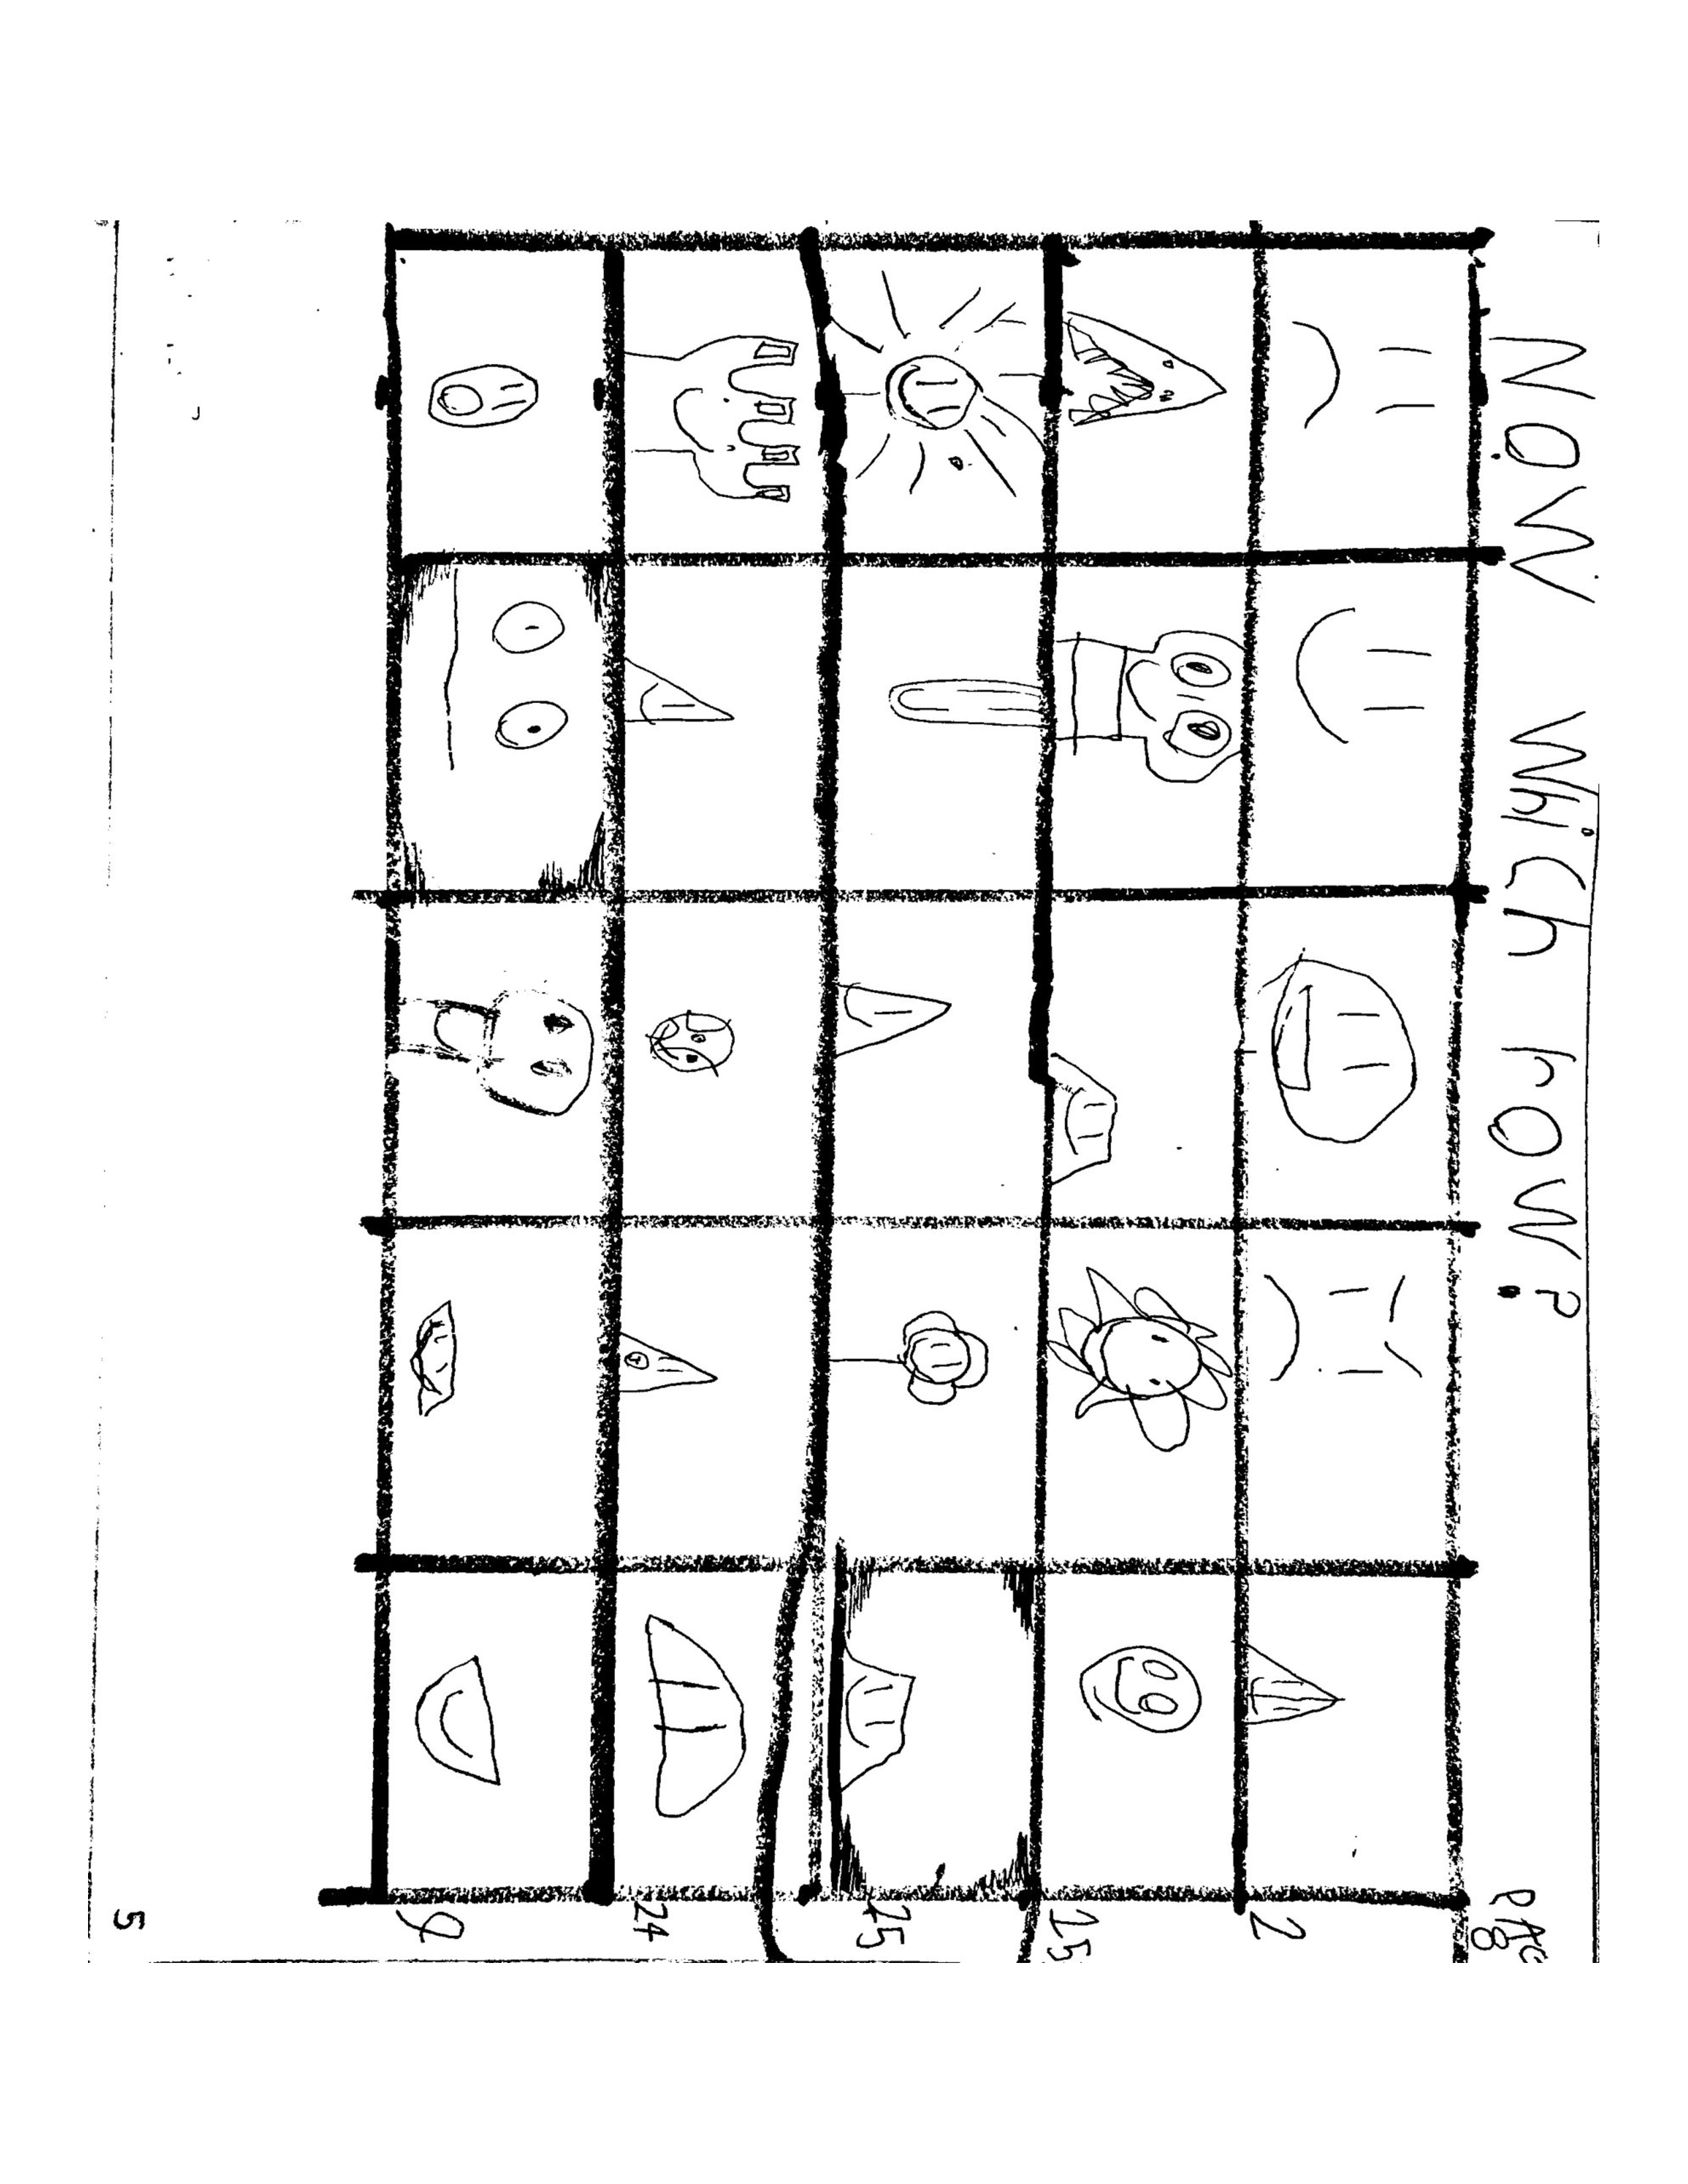 NOW Which roW?
PAG
8
2
25
25
24
5